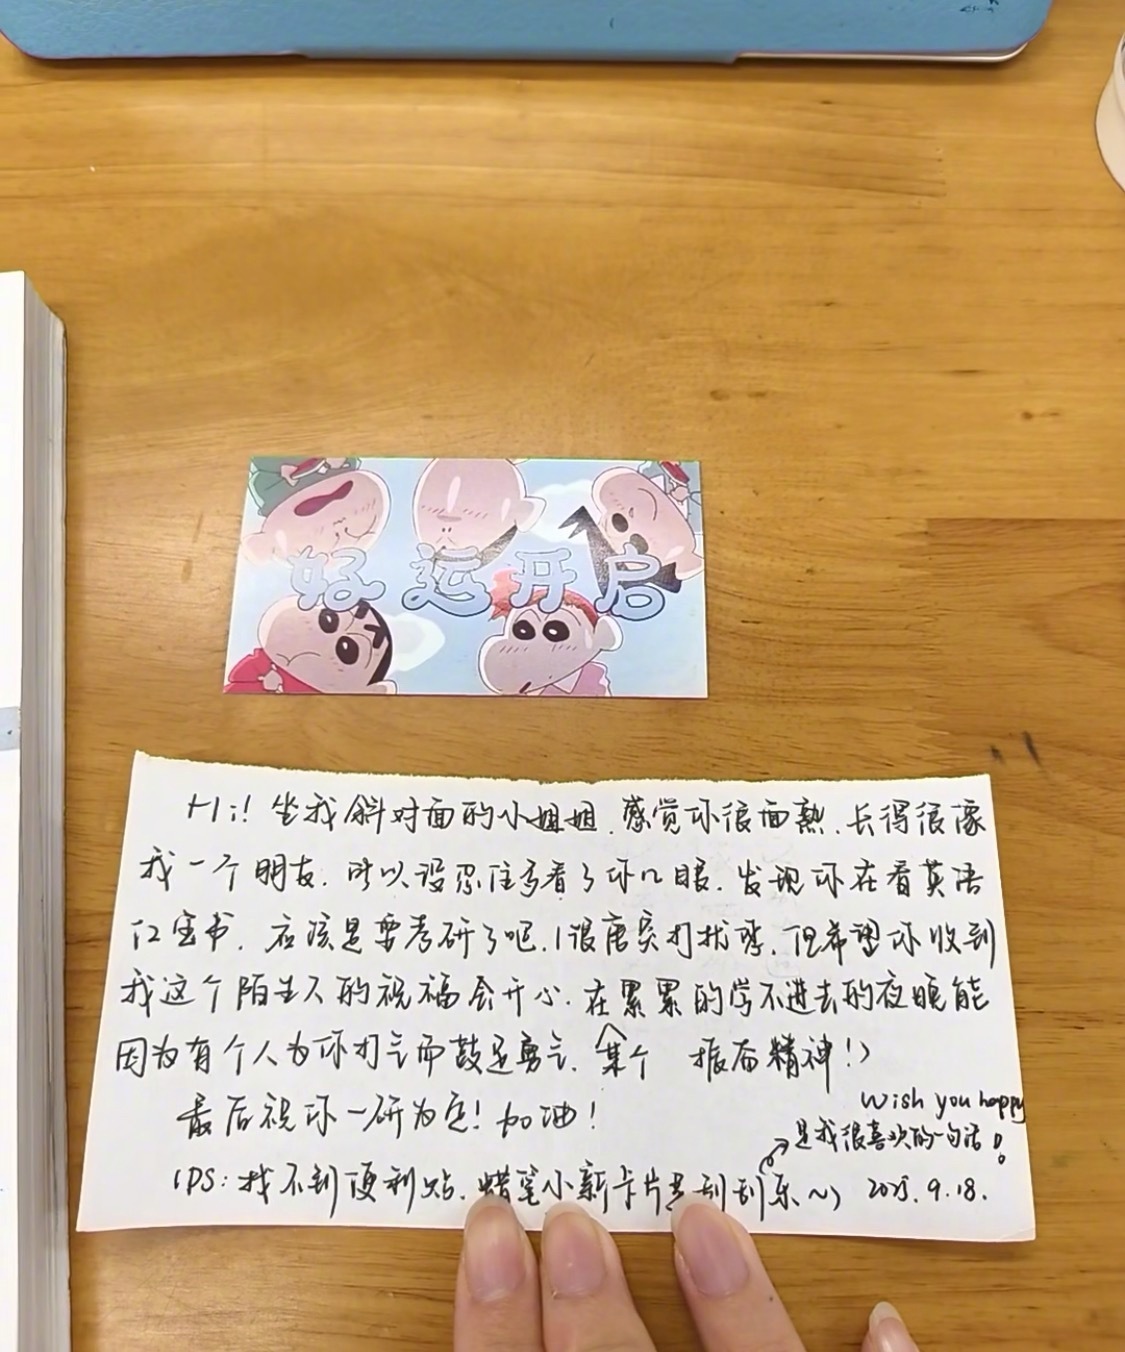 好运开启
Hi! 坐我斜对面的小姐姐, 感觉你很面熟, 长得很像
我一个朋友, 所以没忍住多看了你几眼, 发现你在看英语
红宝书, 应该是要考研了吧, (很唐突打扰, 但希望你收到
我这个陌生人的祝福会开心, 在累累的学不进去的夜晚能
因为有个人为你打气而鼓足勇气, 某个 振奋精神!)
最后祝你一研为定! 加油!
Wish you happy!
是我很喜欢的一句话
(PS: 找不到便利贴, 蜡笔小新卡片刮到乐~) 2025.9.18.